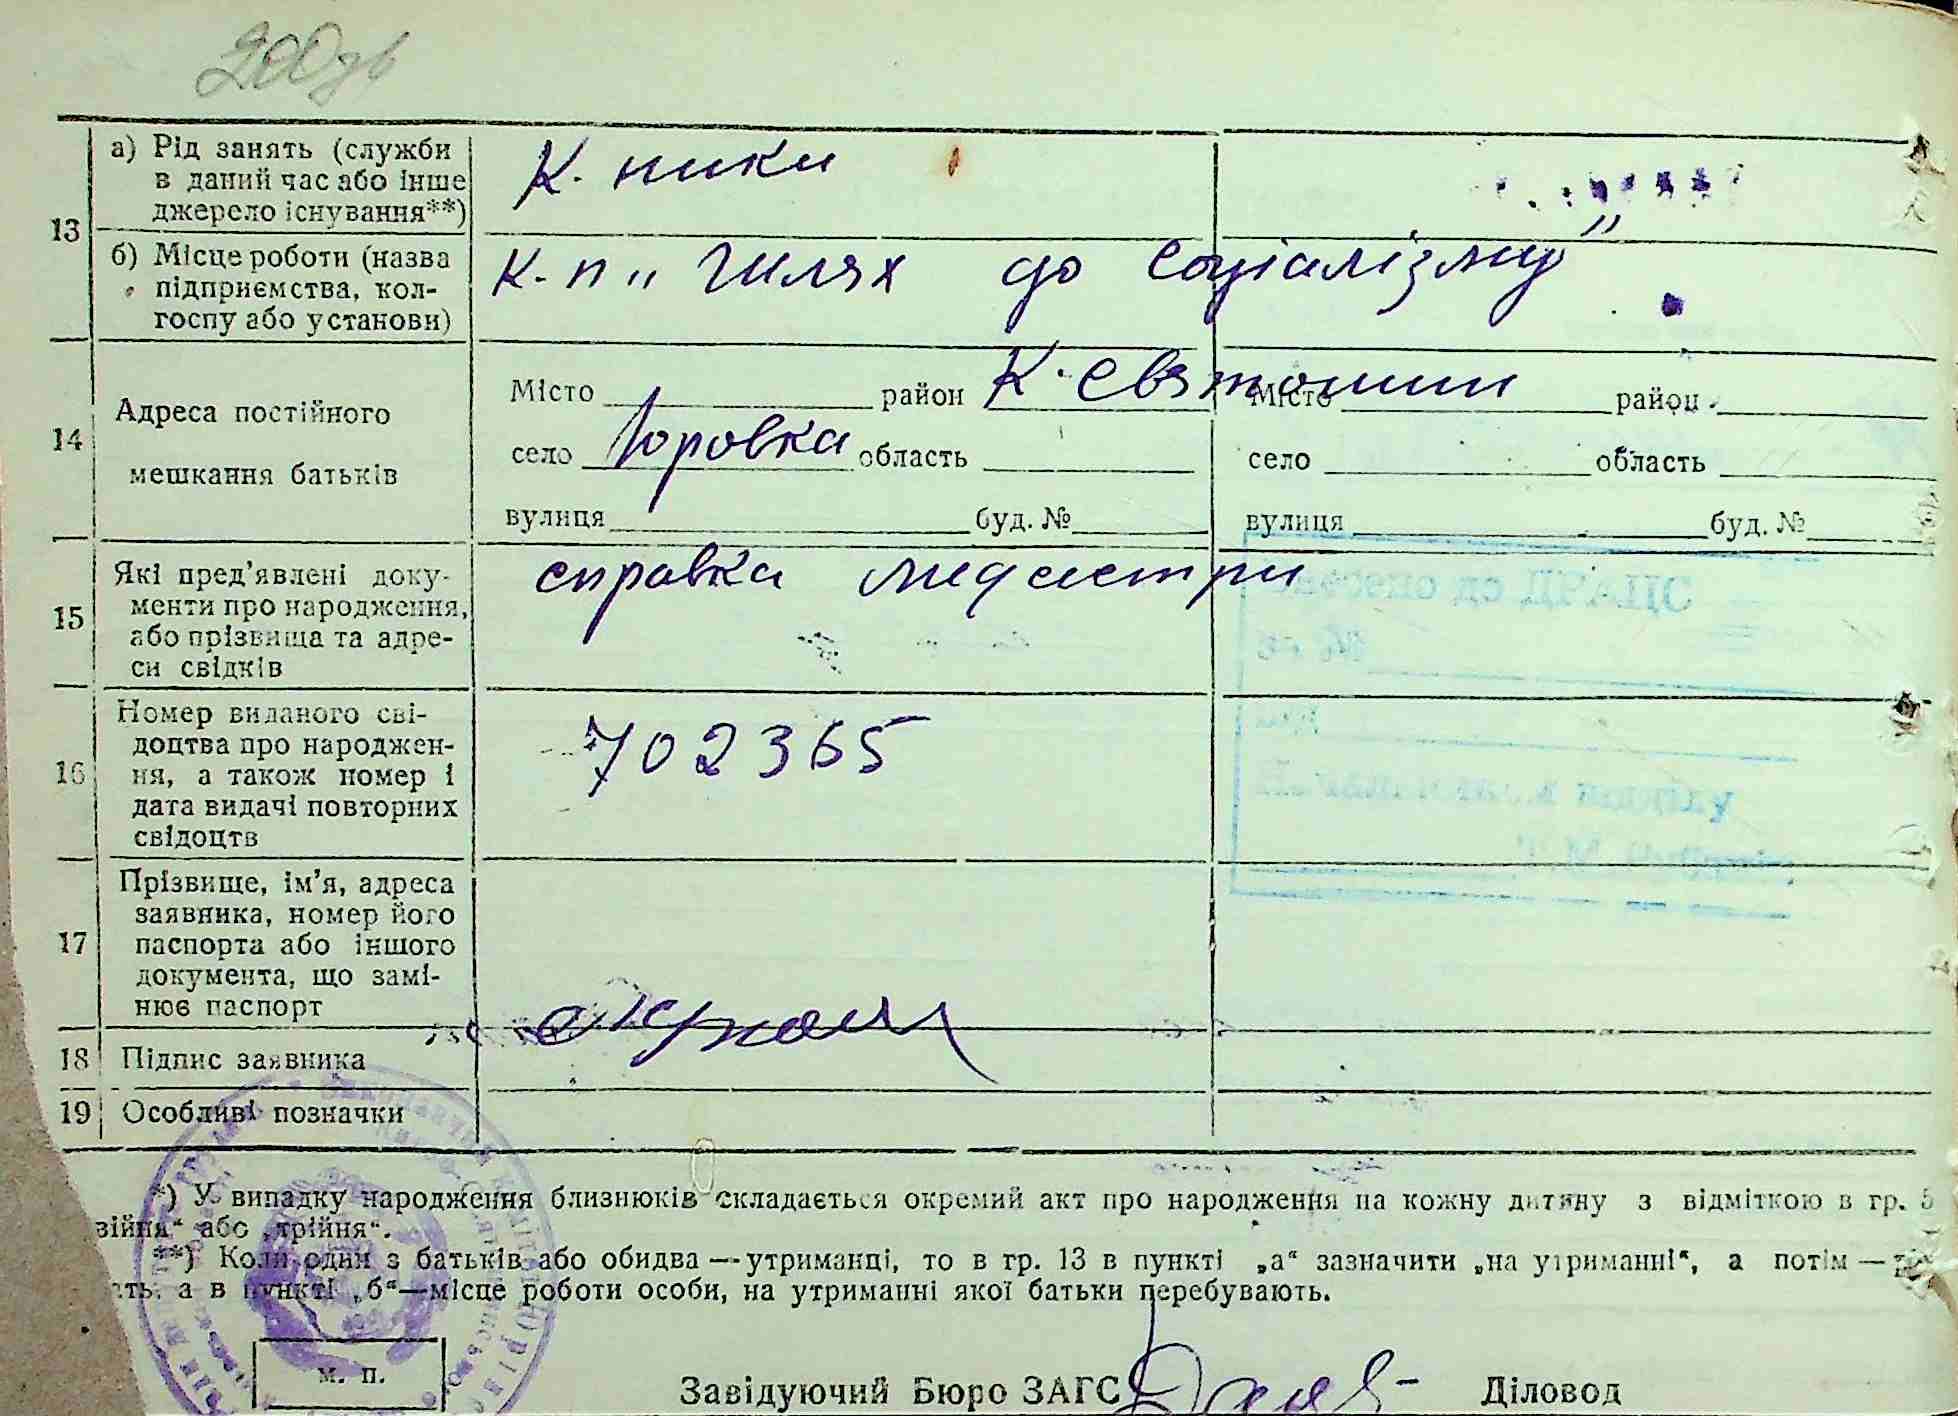 13 а) Рід занять (служби
в даний час або інше
джерело існування**)
К. ники
б) Місце роботи (назва
підприємства, кол-
госпу або установи)
к-п „ Шлях до соціалізму"
14 Адреса постійного
мешкання батьків
Місто район К. Святошин
село Юровка область
вулиця буд. №
Місто район
село область
вулиця буд. №
15 Які пред'явлені доку-
менти про народження,
або прізвища та адре-
си свідків
справка медсестри
внесено до ДРАЦС
за №
від
Начальник відділу
16 Номер виданого сві-
доцтва про народжен-
ня, а також номер і
дата видачі повторних
свідоцтв
702365
17 Прізвище, ім'я, адреса
заявника, номер його
паспорта або іншого
документа, що замі-
нює паспорт
18 Підпис заявника
19 Особливі позначки
*) У випадку народження близнюків складається окремий акт про народження на кожну дитину з відміткою в гр. 5
війня" або „трійня".
**) Коли один з батьків або обидва — утриманці, то в гр. 13 в пункті „а" зазначити „на утриманні", а потім —
а в пункті „б"—місце роботи особи, на утриманні якої батьки перебувають.
м. п.
Завідуючий Бюро ЗАГС Діловод